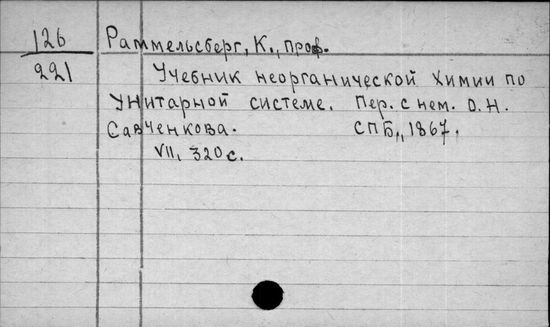 126 Раммельсберг, К., проф.
221 Учебник неорганической химии по
унитарной системе. Пер. с нем. О.Н.
Савченкова. СПБ., 1867.
VII, 320 с.